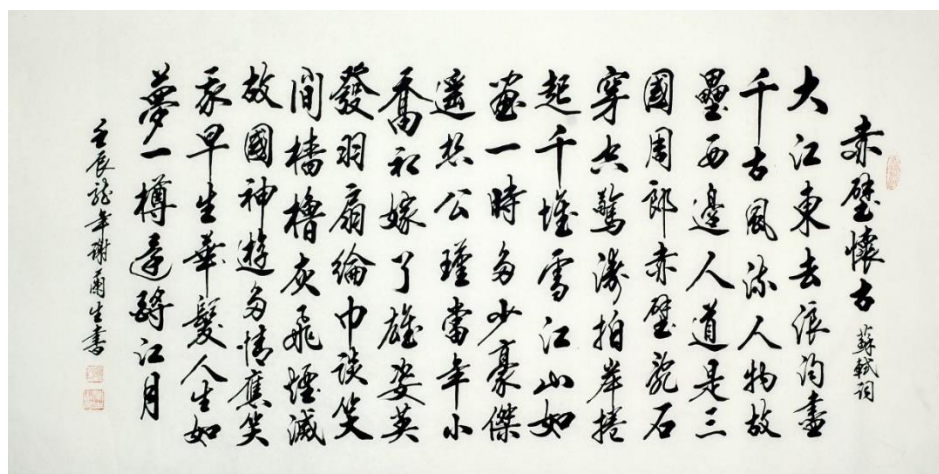 赤壁懷古 蘇軾詞
大江東去浪淘盡
千古風流人物故
壘西邊人道是三
國周郎赤壁亂石
穿空驚濤拍岸捲
起千堆雪江山如
畫一時多少豪傑
遙想公瑾當年小
喬初嫁了雄姿英
發羽扇綸巾談笑
間檣櫓灰飛煙滅
故國神遊多情應笑
我早生華髮人生如
夢一樽還酹江月
壬辰龍年謝生書